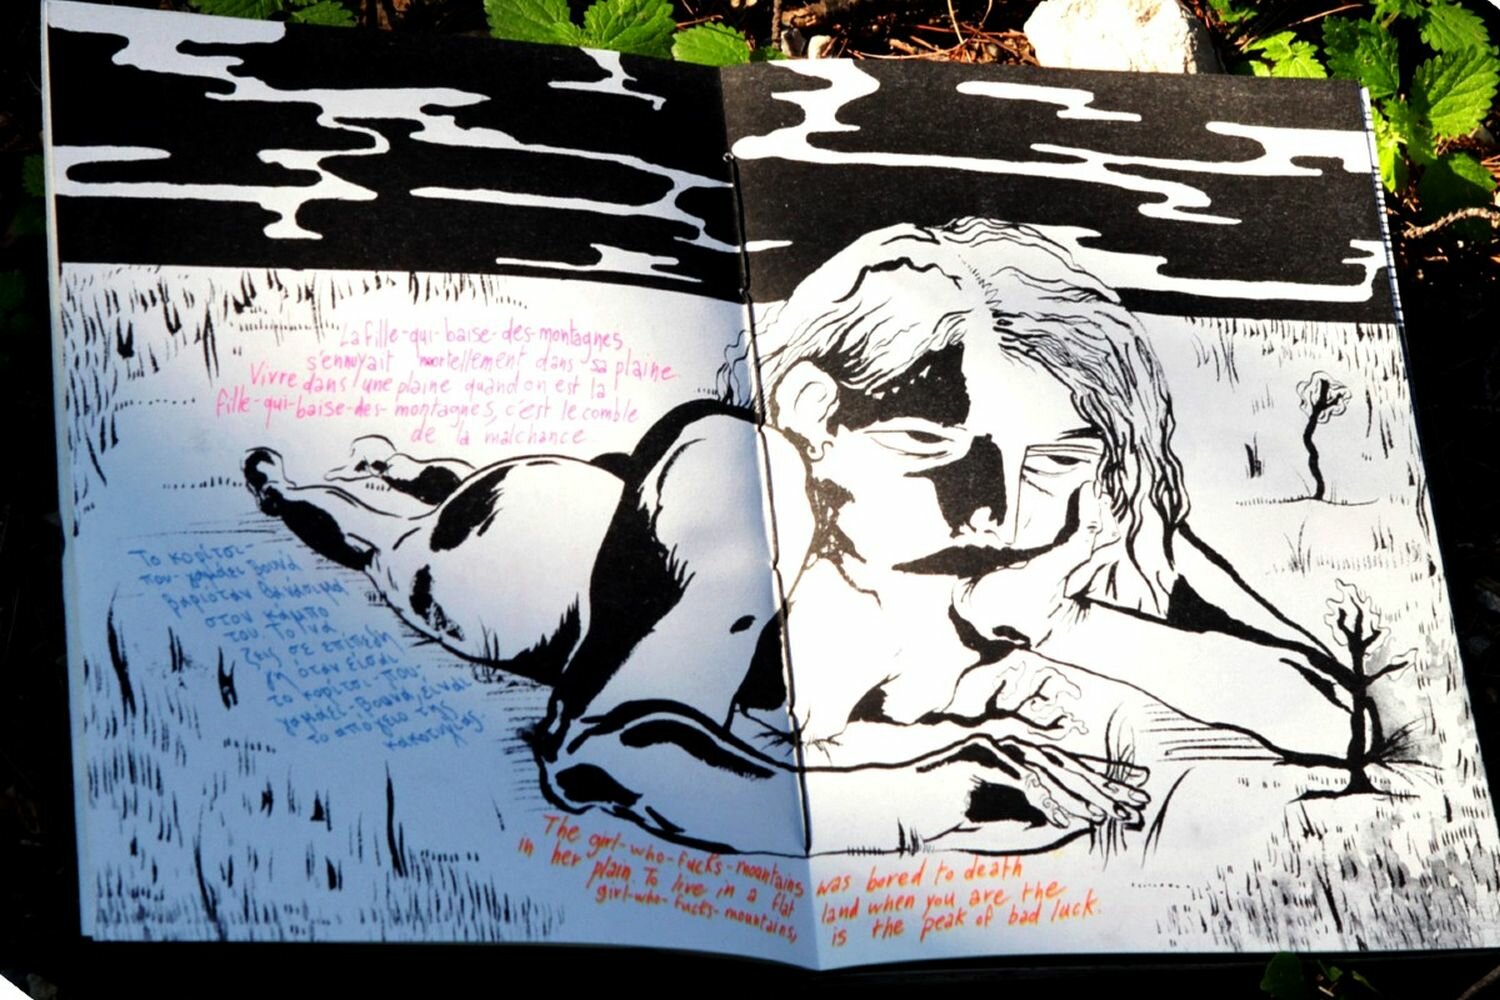 La fille-qui-baise-des-montagnes
s'ennuyait mortellement dans sa plaine.
Vivre dans une plaine quand on est la
fille-qui-baise-des-montagnes, c'est le comble
de la malchance.
Το κορίτσι-
που-γαμάει-βουνά
βαριόταν θανάσιμα
στον κάμπο
του. Το να
ζεις σε επίπεδη
γη όταν είσαι
το κορίτσι-που-
γαμάει-βουνά, είναι
το απόγειο της
κακοτυχίας.
The girl-who-fucks-mountains was bored to death
in her plain. To live in a flat land when you are the
girl-who-fucks-mountains, is the peak of bad luck.